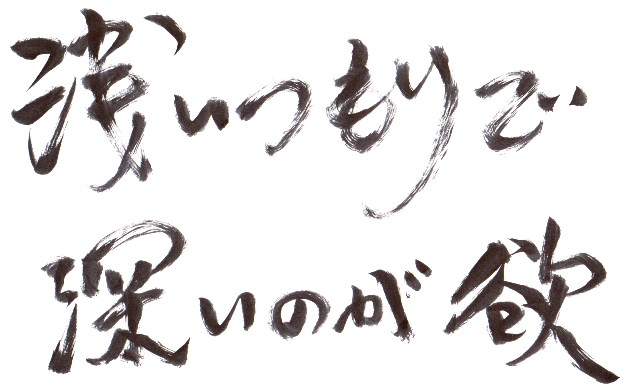 浅いつもりで
深いのが欲